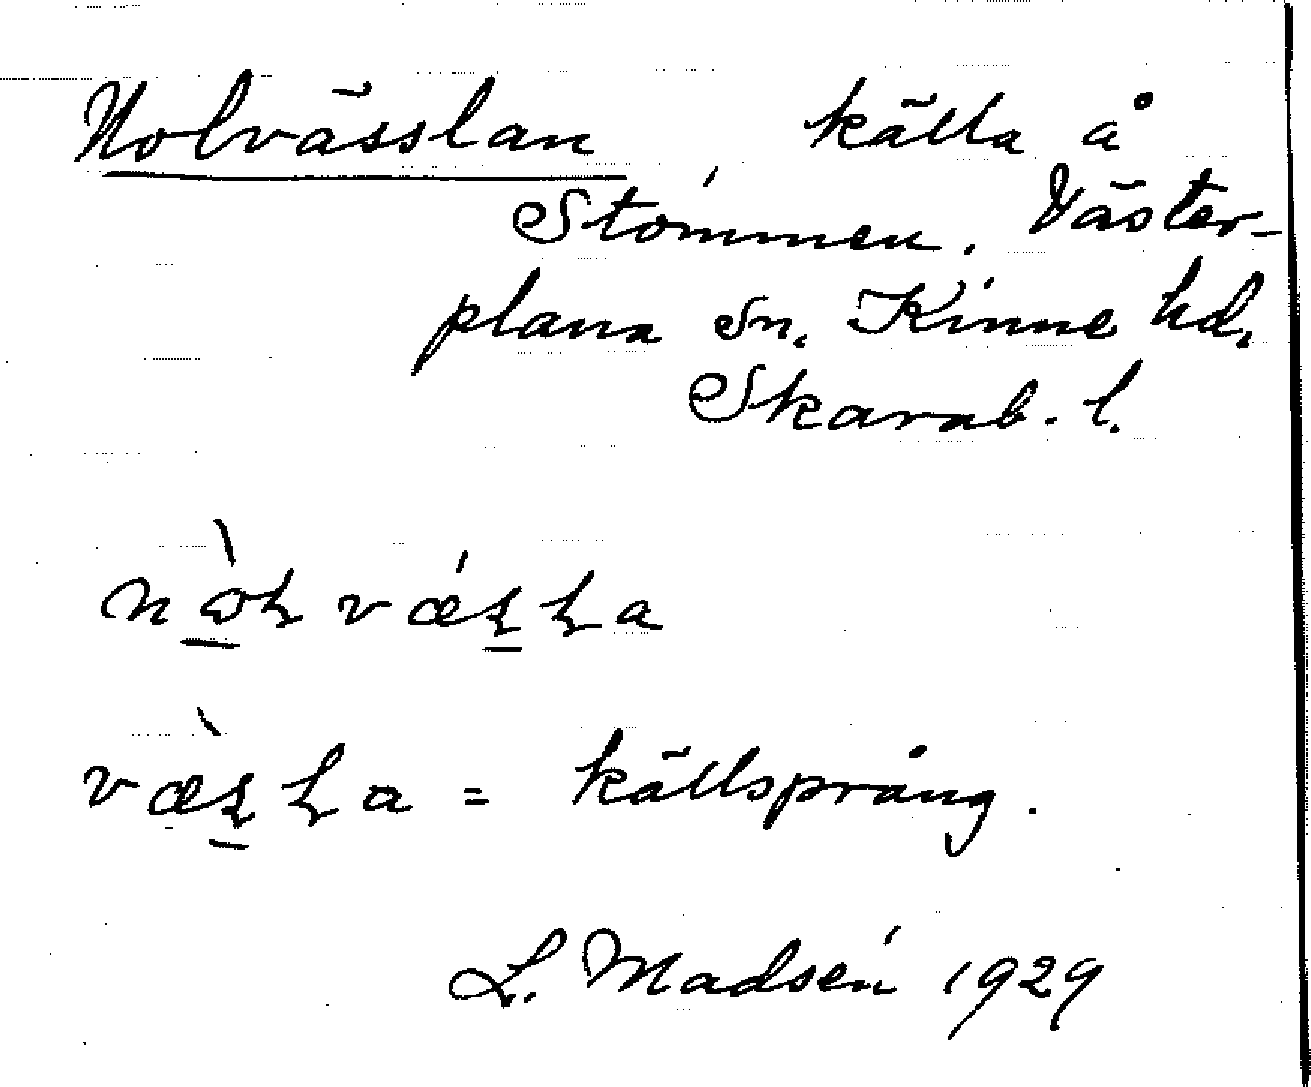 Nolvässlan källa å
Stommen, Väster-
plana sn. Kinne hd,
Skarab. l.
= källsprång.
L. Madsén 1929